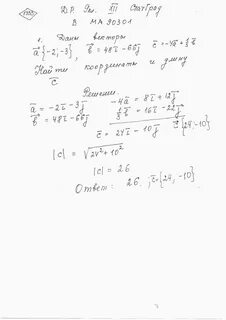 1. Даны векторы
a⃗{-2; -3}, b⃗ = 48i - 66j c⃗ = -4a + ⅓b
Найти координаты и длину
c⃗
Решение.
a⃗ = -2i - 3j -4a = 8i + 12j
b⃗ = 48i - 66j ⅓b = 16i - 22j
c⃗ = 24i - 10j c⃗{24, -10}
|c| = √24² + 10²
|c| = 26
Ответ: 26, c⃗ = {24, -10}